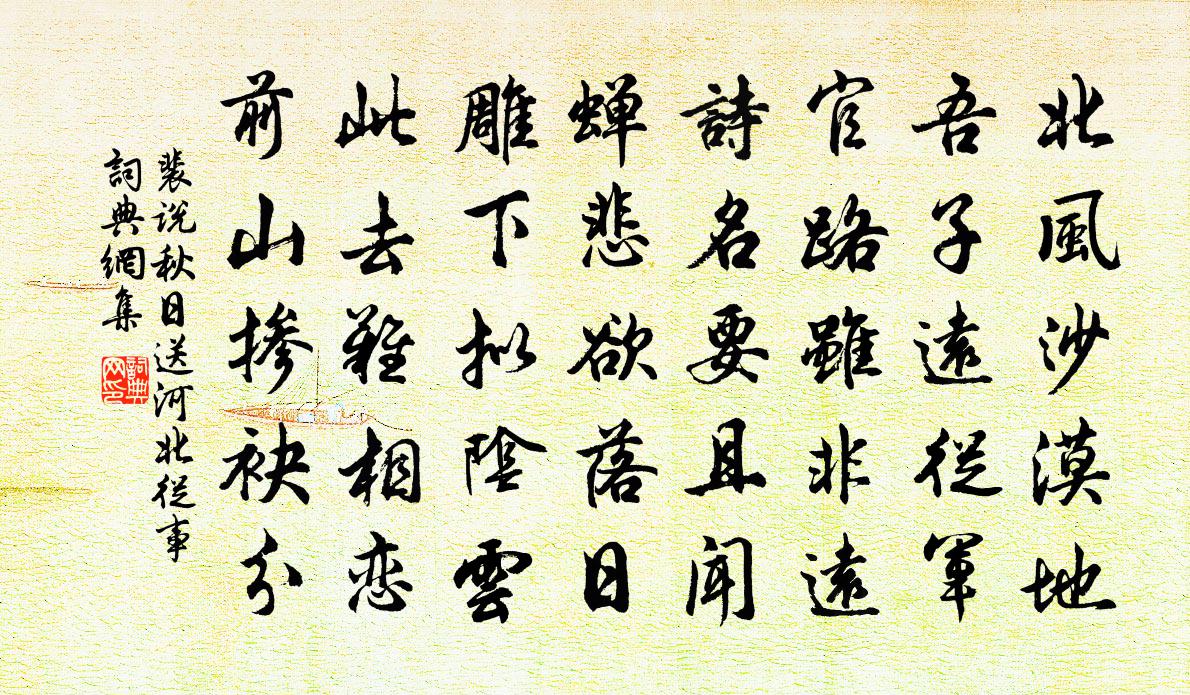 北風沙漠地
吾子遠從軍
官路雖非遠
詩名要且聞
蝉悲欲落日
雕下拟陰雲
此去難相恋
前山掺袂分
裴说秋日送河北從事
詞典網集
詞典
网印